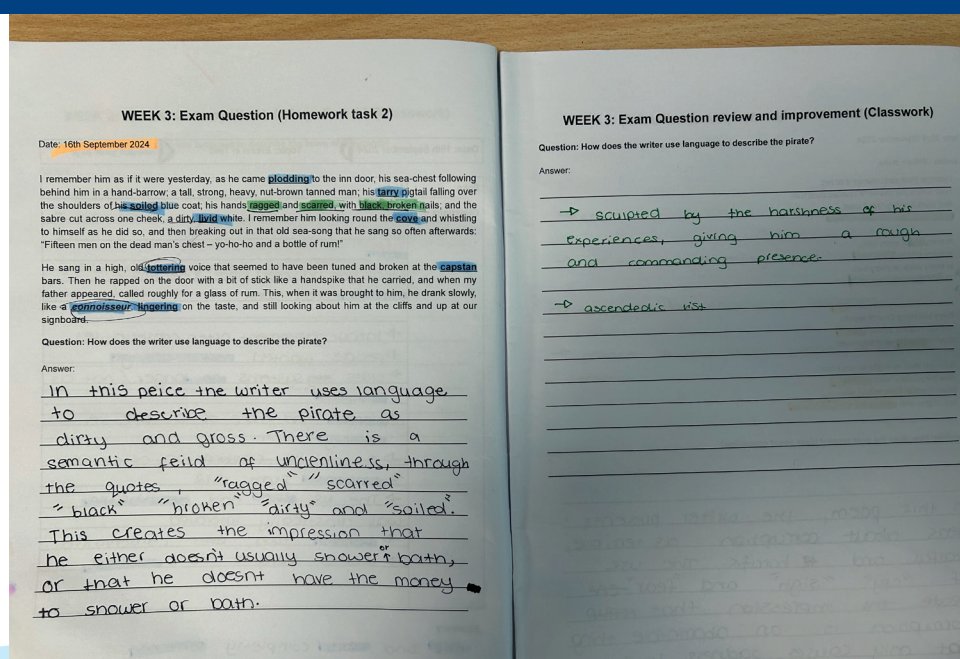 WEEK 3: Exam Question (Homework task 2)
Date: 16th September 2024
I remember him as if it were yesterday, as he came plodding to the inn door, his sea-chest following
behind him in a hand-barrow; a tall, strong, heavy, nut-brown tanned man; his tarry pigtail falling over
the shoulders of his soiled blue coat; his hands ragged and scarred, with black, broken nails; and the
sabre cut across one cheek, a dirty, livid white. I remember him looking round the cove and whistling
to himself as he did so, and then breaking out in that old sea-song that he sang so often afterwards:
“Fifteen men on the dead man’s chest – yo-ho-ho and a bottle of rum!”
He sang in a high, old tottering voice that seemed to have been tuned and broken at the capstan
bars. Then he rapped on the door with a bit of stick like a handspike that he carried, and when my
father appeared, called roughly for a glass of rum. This, when it was brought to him, he drank slowly,
like a connoisseur, lingering on the taste, and still looking about him at the cliffs and up at our
signboard.
Question: How does the writer use language to describe the pirate?
Answer:
In this peice the writer uses language
to describe the pirate as
dirty and gross. There is a
semantic feild of unclenliness, through
the quotes, "ragged" "scarred"
"black" "broken" "dirty" and "soiled".
This creates the impression that
he either doesn't usually shower or bath,
or that he doesnt have the money
to shower or bath.
WEEK 3: Exam Question review and improvement (Classwork)
Question: How does the writer use language to describe the pirate?
Answer:
→ sculpted by the harshness of his
experiences, giving him a rough
and commanding presence.
→ ascendedic list